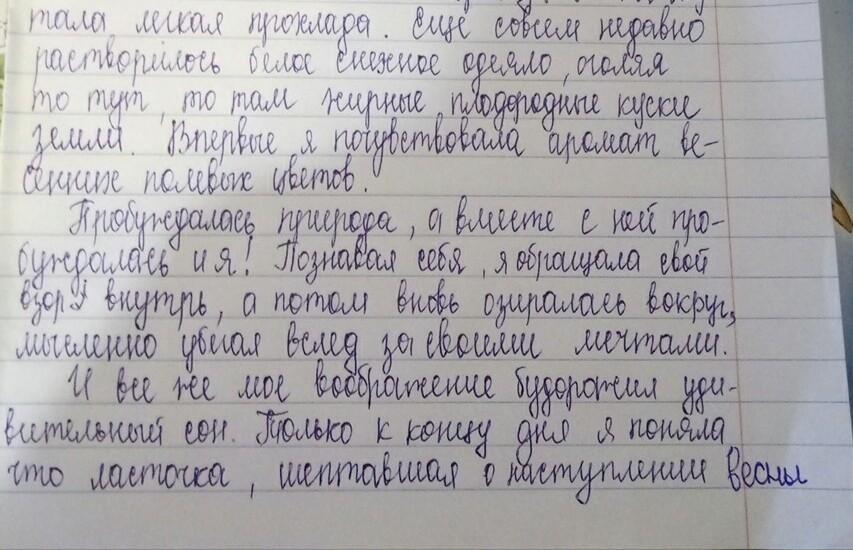 тала легкая прохлада. Ещё совсем недавно
растворилось белое снежное одеяло, оголяя
то тут, то там жирные, плодородные куски
земли. Впервые я почувствовала аромат ве-
сенних полевых цветов.
Пробуждалась природа, а вместе с ней про-
буждалась и я! Познавая себя, я обращала свой
взор внутрь, а потом вновь озиралась вокруг,
мысленно убегая вслед за своими мечтами.
И все же мое воображение будоражил уди-
вительный сон. Только к концу дня я поняла
что ласточка, шептавшая о наступлении весны